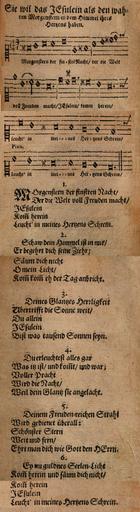 Sie wil das JEsulein als den wah-
ren Morgenstern in dem Himmel ihres
Hertzens haben.
Morgenstern der fin-stern Nacht/ der die Welt
voll Freuden macht/ JEsulein/ komm herein/
Leucht' in mei-nes Her-tzens Schrein.
Leucht' in mei-nes Her-tzens Schrein.
1.
MOrgenstern der finstern Nacht/
Der die Welt voll Freuden macht/
JEsulein
Kom herein
Leucht' in meines Hertzens Schrein.
2.
Schaw dein Himmel ist in mir/
Er begehrt dich seine Ziehr;
Säum dich nicht
O mein Licht/
Kom kom eh der Tag anbricht.
3.
Deines Glantzes Herrligkeit
Ubertrifft die Sonne weit/
Du allein
JEsulein
Bist was tausend Sonnen seyn.
4.
Du erleuchtest alles gar
Was itzt ist/ und komt/ und war;
Voller Pracht
Wird die Nacht/
Weil dein Glantz sie angelacht.
5.
Deinem Freuden-reichen Strahl
Wird gedienet überall:
Schönster Stern
Weit und fern/
Ehrt man dich wie Gott den HErrn.
6.
Ey nu guldnes Seelen-Licht
Kom herein und säum dich nicht/
Kom herein
JEsulein
Leucht' in meines Hertzens Schrein.